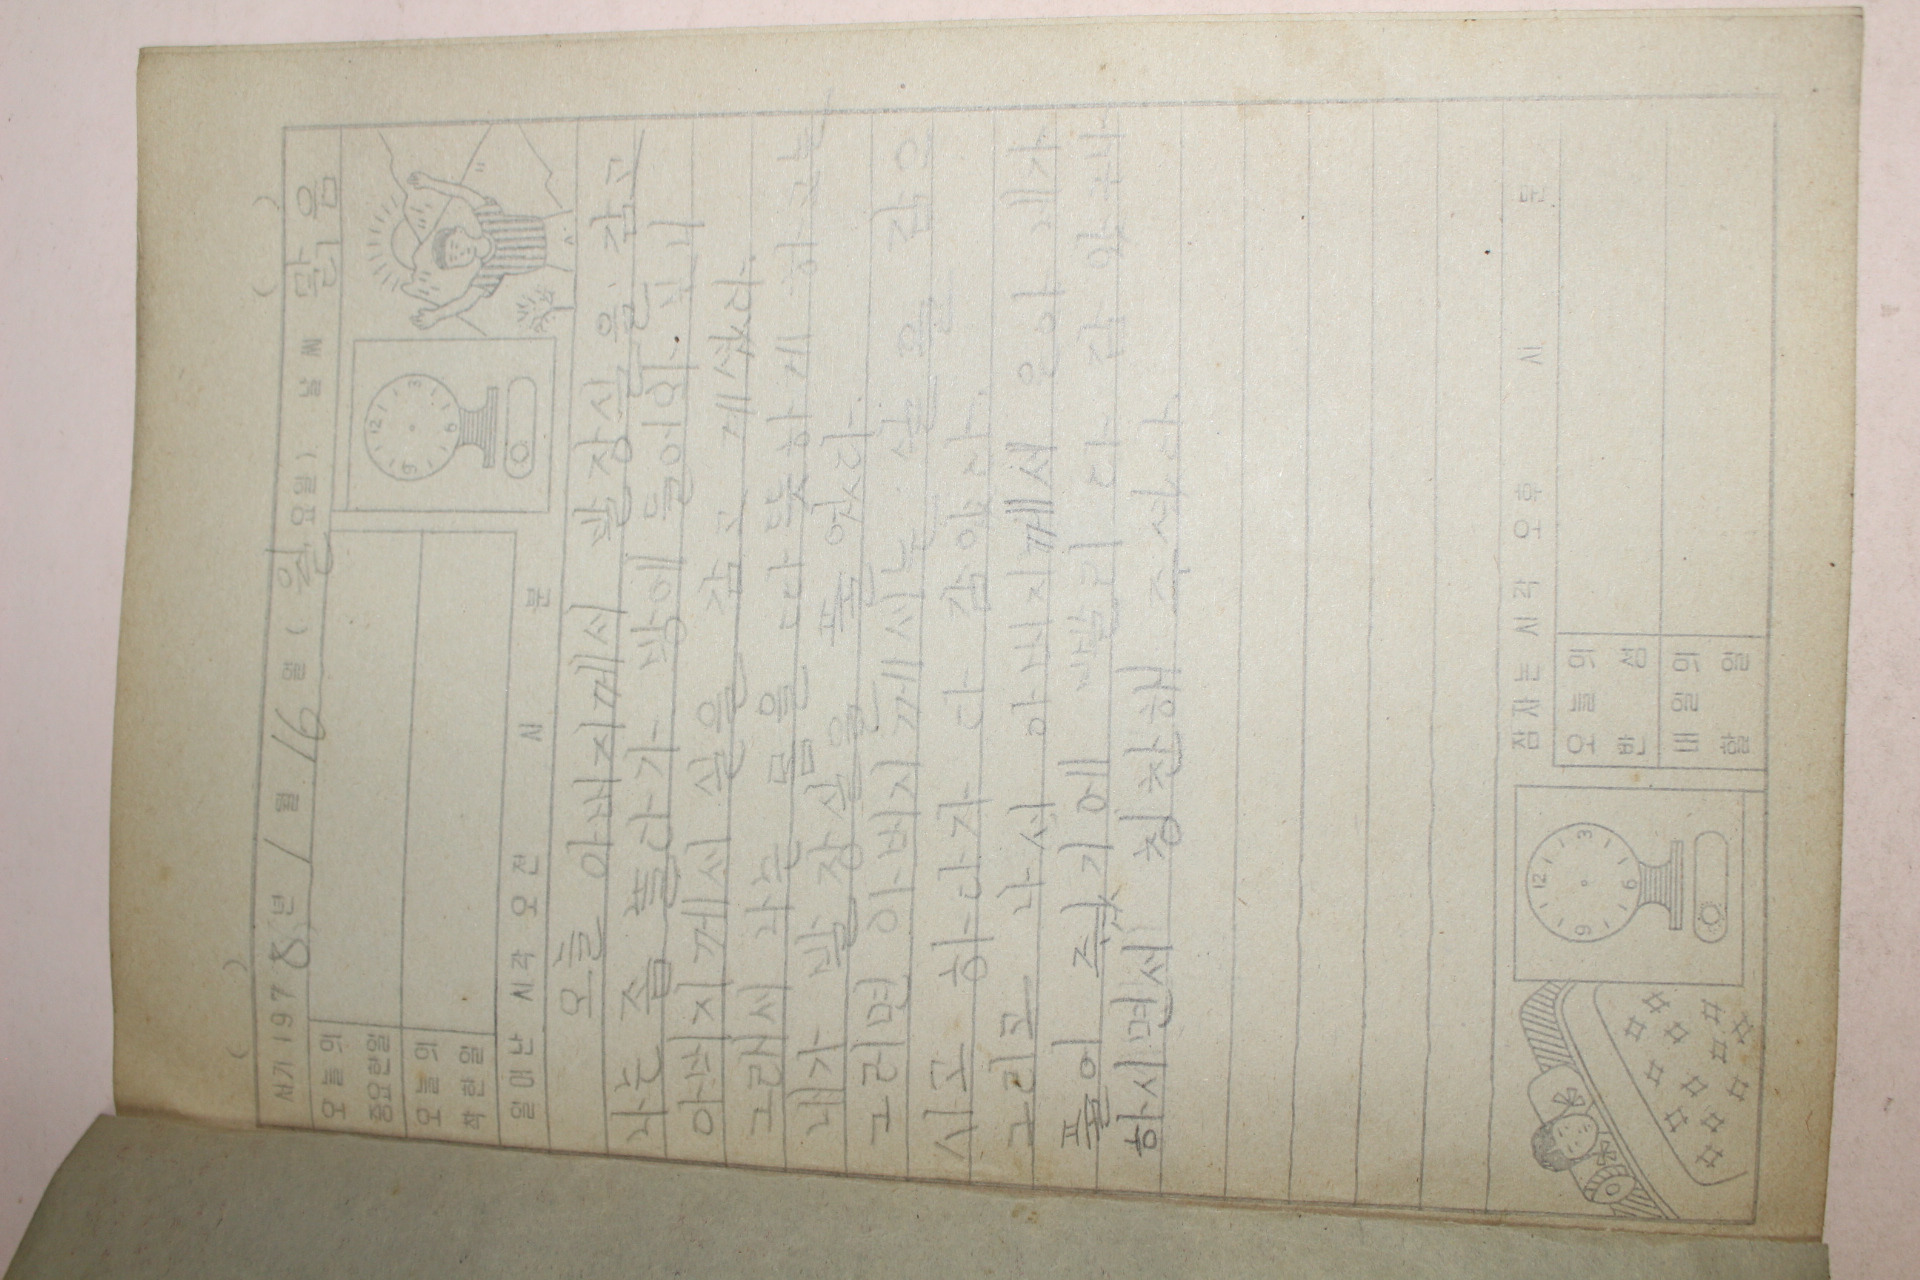 ( )
( )
서기 1978년 1월 16일 ( 월요일 ) 날씨 맑음
오늘의
중요한일
오늘의
착한일
12
9 3
6
일어난 시각 오전 시 분
오늘 아버지께서 발장실을 감고
나는 좀 놀다가 방에 들어와 보니
아버지께서 실을 감고 계셨다.
그래서 나는 몸을 따뜻하게 하고는
내가 발장실을 풀었다.
그러면 아버지께서는 실을 감으
시고 하다가 다 감았다.
그리고 나서 아버지께서 은아 네가
풀어 주었기에 빨리 다 감았구나
하시면서 칭찬해 주셨다.
12
9 3
6
잠자는 시각 오후 시 분
오늘의
반 성
내일의
할 일